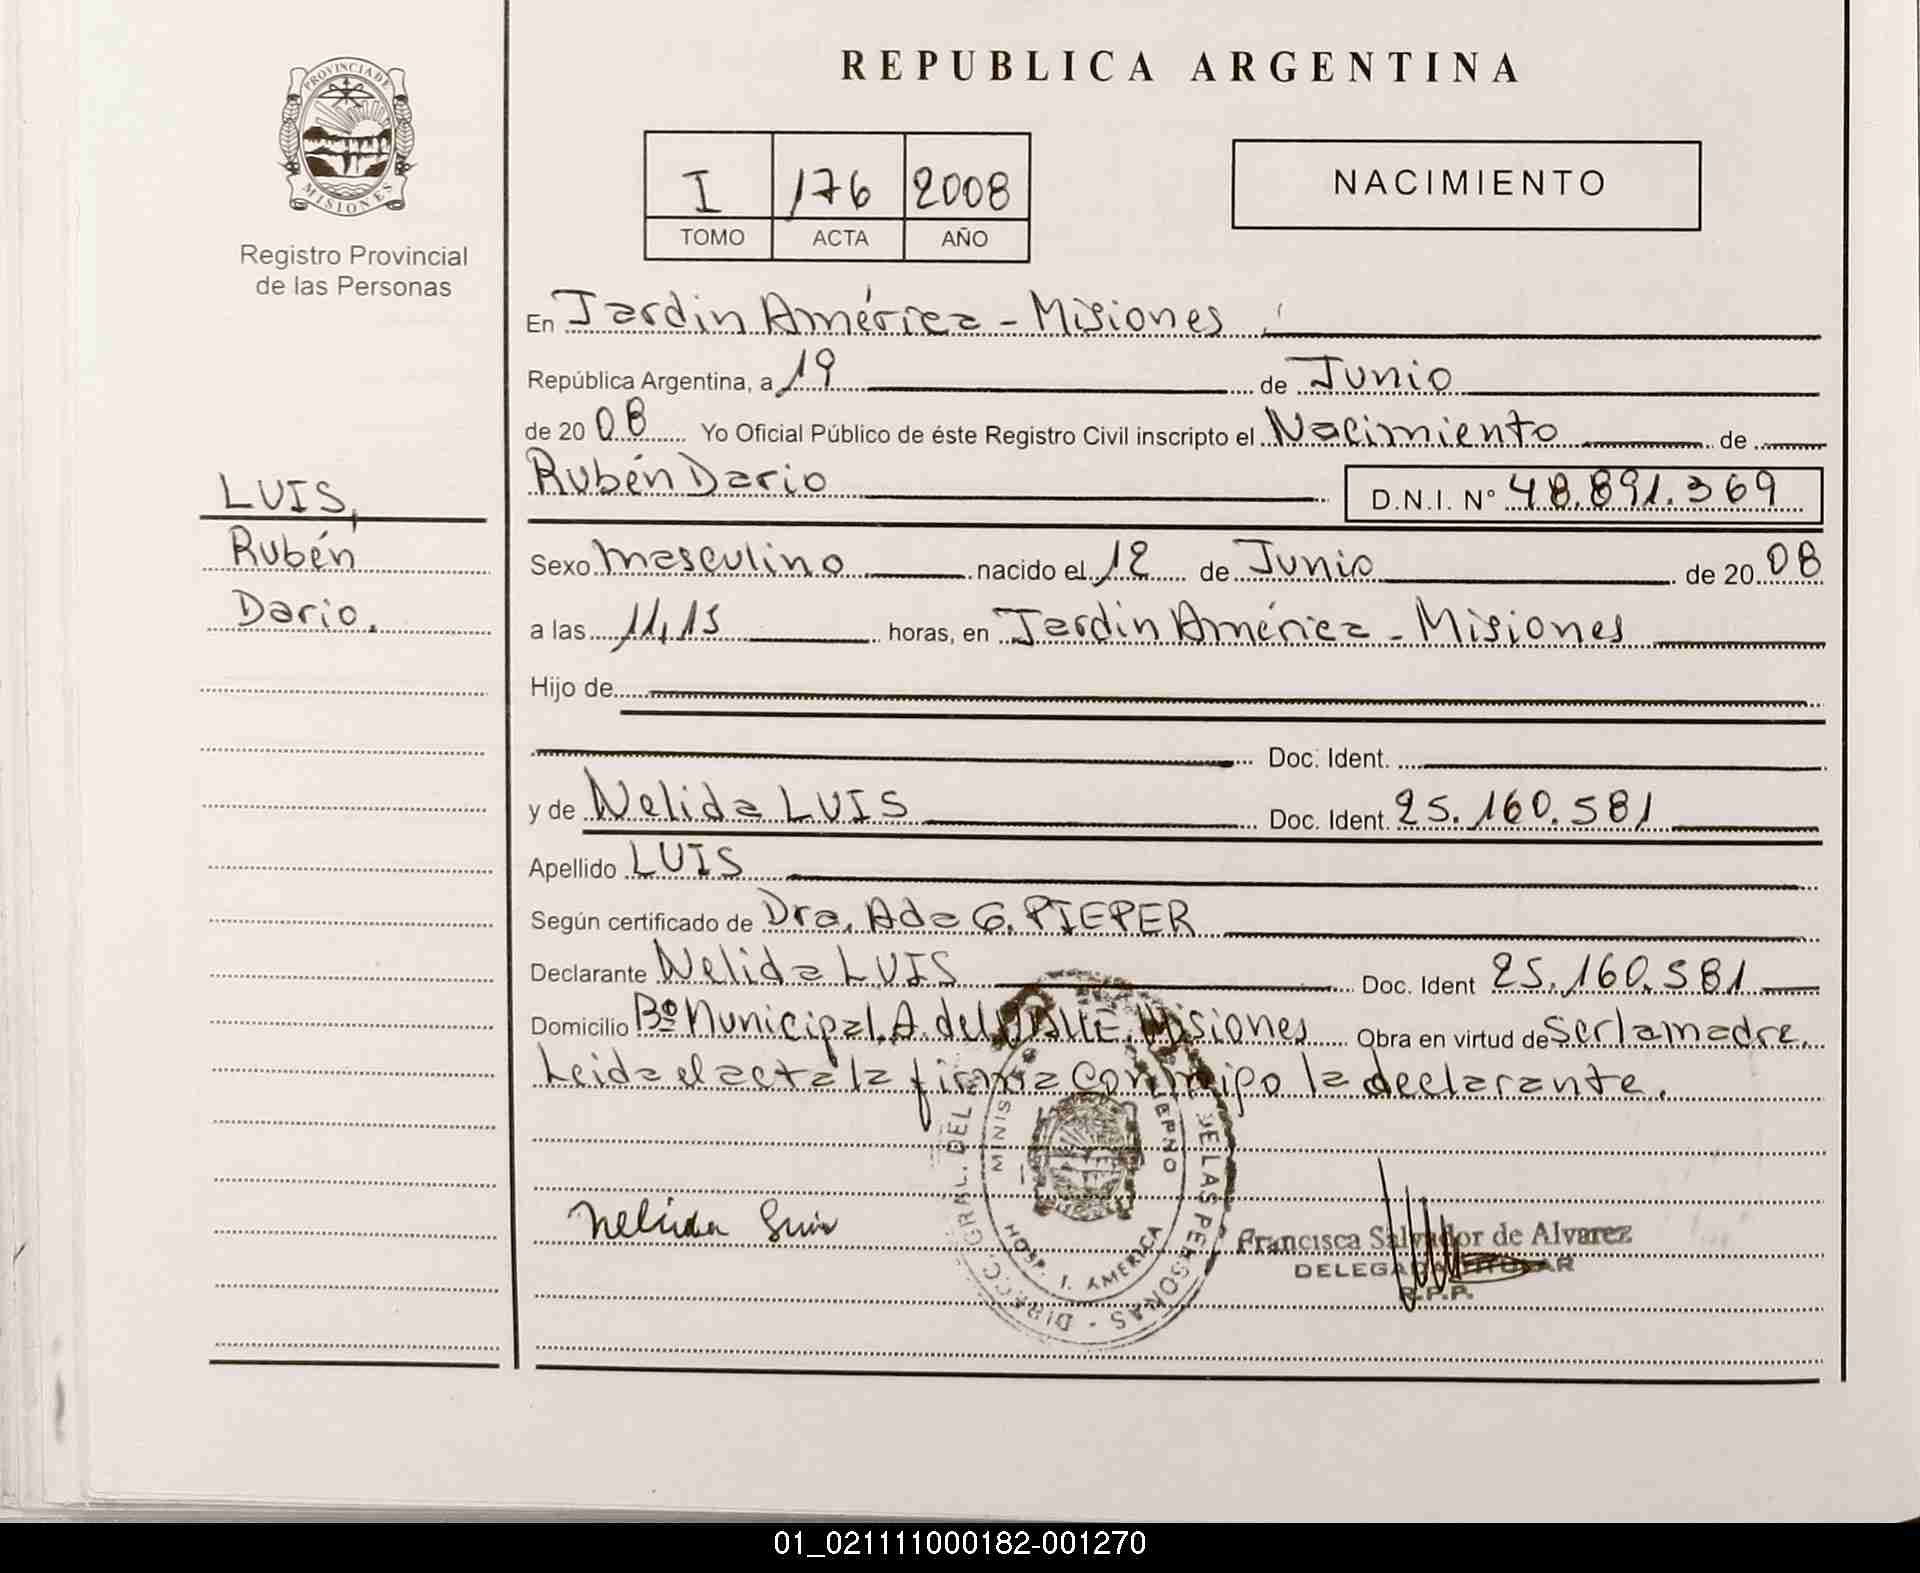 REPUBLICA ARGENTINA
PROVINCIA DE
MISIONES
Registro Provincial
de las Personas
I 176 2008
TOMO ACTA AÑO
NACIMIENTO
En Jardin América - Misiones
República Argentina, a 19 de Junio
de 20 08 Yo Oficial Público de éste Registro Civil inscripto el Nacimiento de
Rubén Dario D.N.I. Nº 48.891.369
LUIS,
Rubén
Dario.
Sexo masculino nacido el 12 de Junio de 20 08
a las 11,15 horas, en Jardin América - Misiones
Hijo de
Doc. Ident.
y de Nelida LUIS Doc. Ident. 25.160.581
Apellido LUIS
Según certificado de Dra. Ada G. PIEPER
Declarante Nelida LUIS Doc. Ident 25.160.581
Domicilio Bº Municipal. A. del VALLE. Misiones Obra en virtud de ser la madre.
Leida el acta la firma conmigo la declarante.
Nelida Luis
DIRECC. GRAL. DEL DE LAS PERSONAS
HOSP. J. AMERICA
Francisca Salvador de Alvarez
DELEGADA TITULAR
R.P.P.
01_021111000182-001270